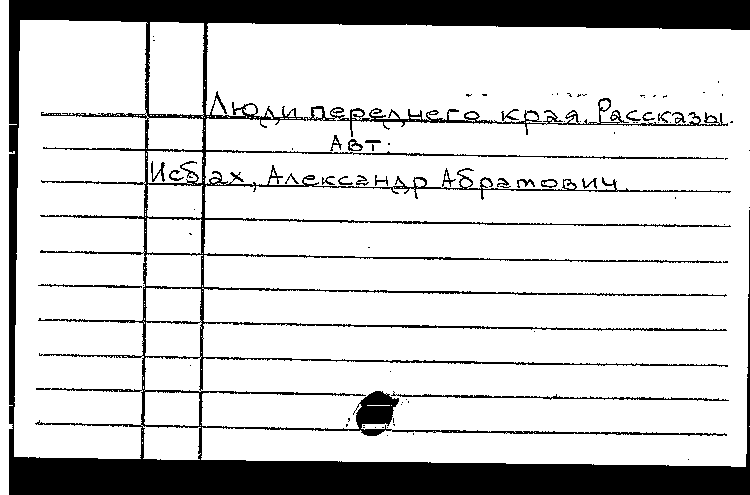 Люди переднего края. Рассказы.
Авт:
Исбах, Александр Абрамович.